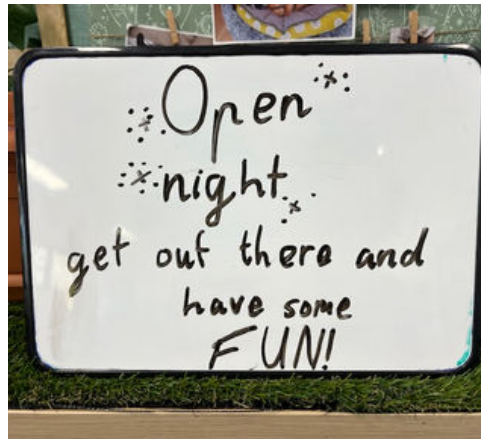 Open
night
get out there and
have some
FUN!